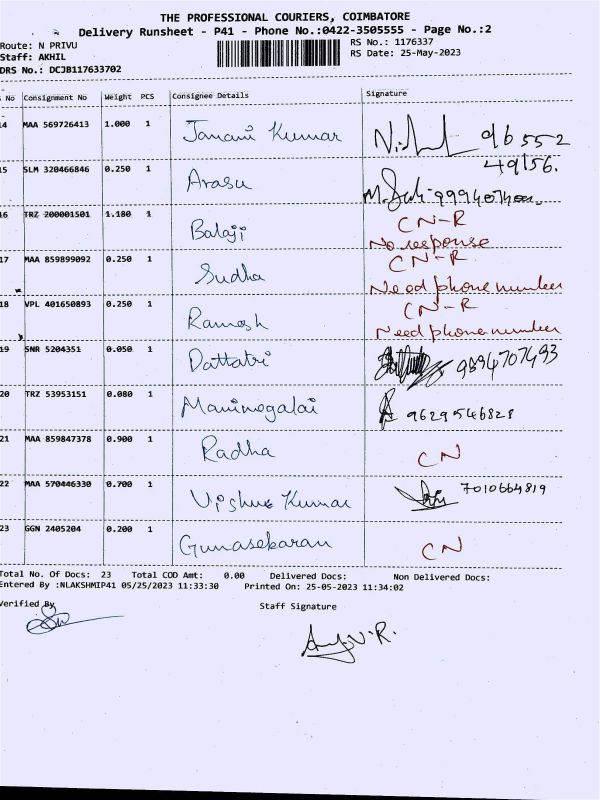 THE PROFESSIONAL COURIERS, COIMBATORE
Delivery Runsheet - P41 - Phone No.:0422-3505555 - Page No.:2
Route: N PRIVU
RS No.: 1176337
Staff: AKHIL
RS Date: 25-May-2023
DRS No.: DCJB117633702
s No Consignment No Weight PCS Consignee Details Signature
14 MAA 569726413 1.000 1 Janani Kumar 96552
49156.
15 SLM 320466846 0.250 1 Arasu
16 TRZ 200001501 1.180 1 Balaji CN-R
No response
17 MAA 859899092 0.250 1 Sudha CN-R
Need phone number
18 VPL 401650893 0.250 1 Ramesh CN-R
Need phone number
19 SNR 5204351 0.050 1 Dattatri 9894707493
20 TRZ 53953151 0.080 1 Manimegalai 9629546828
21 MAA 859847378 0.900 1 Radha CN
22 MAA 570446330 0.700 1 Vishnu Kumar 7010664819
23 GGN 2405204 0.200 1 Gunasekaran CN
Total No. Of Docs: 23 Total COD Amt: 0.00 Delivered Docs: Non Delivered Docs:
Entered By :NLAKSHMIP41 05/25/2023 11:33:30 Printed On: 25-05-2023 11:34:02
Verified By
Staff Signature